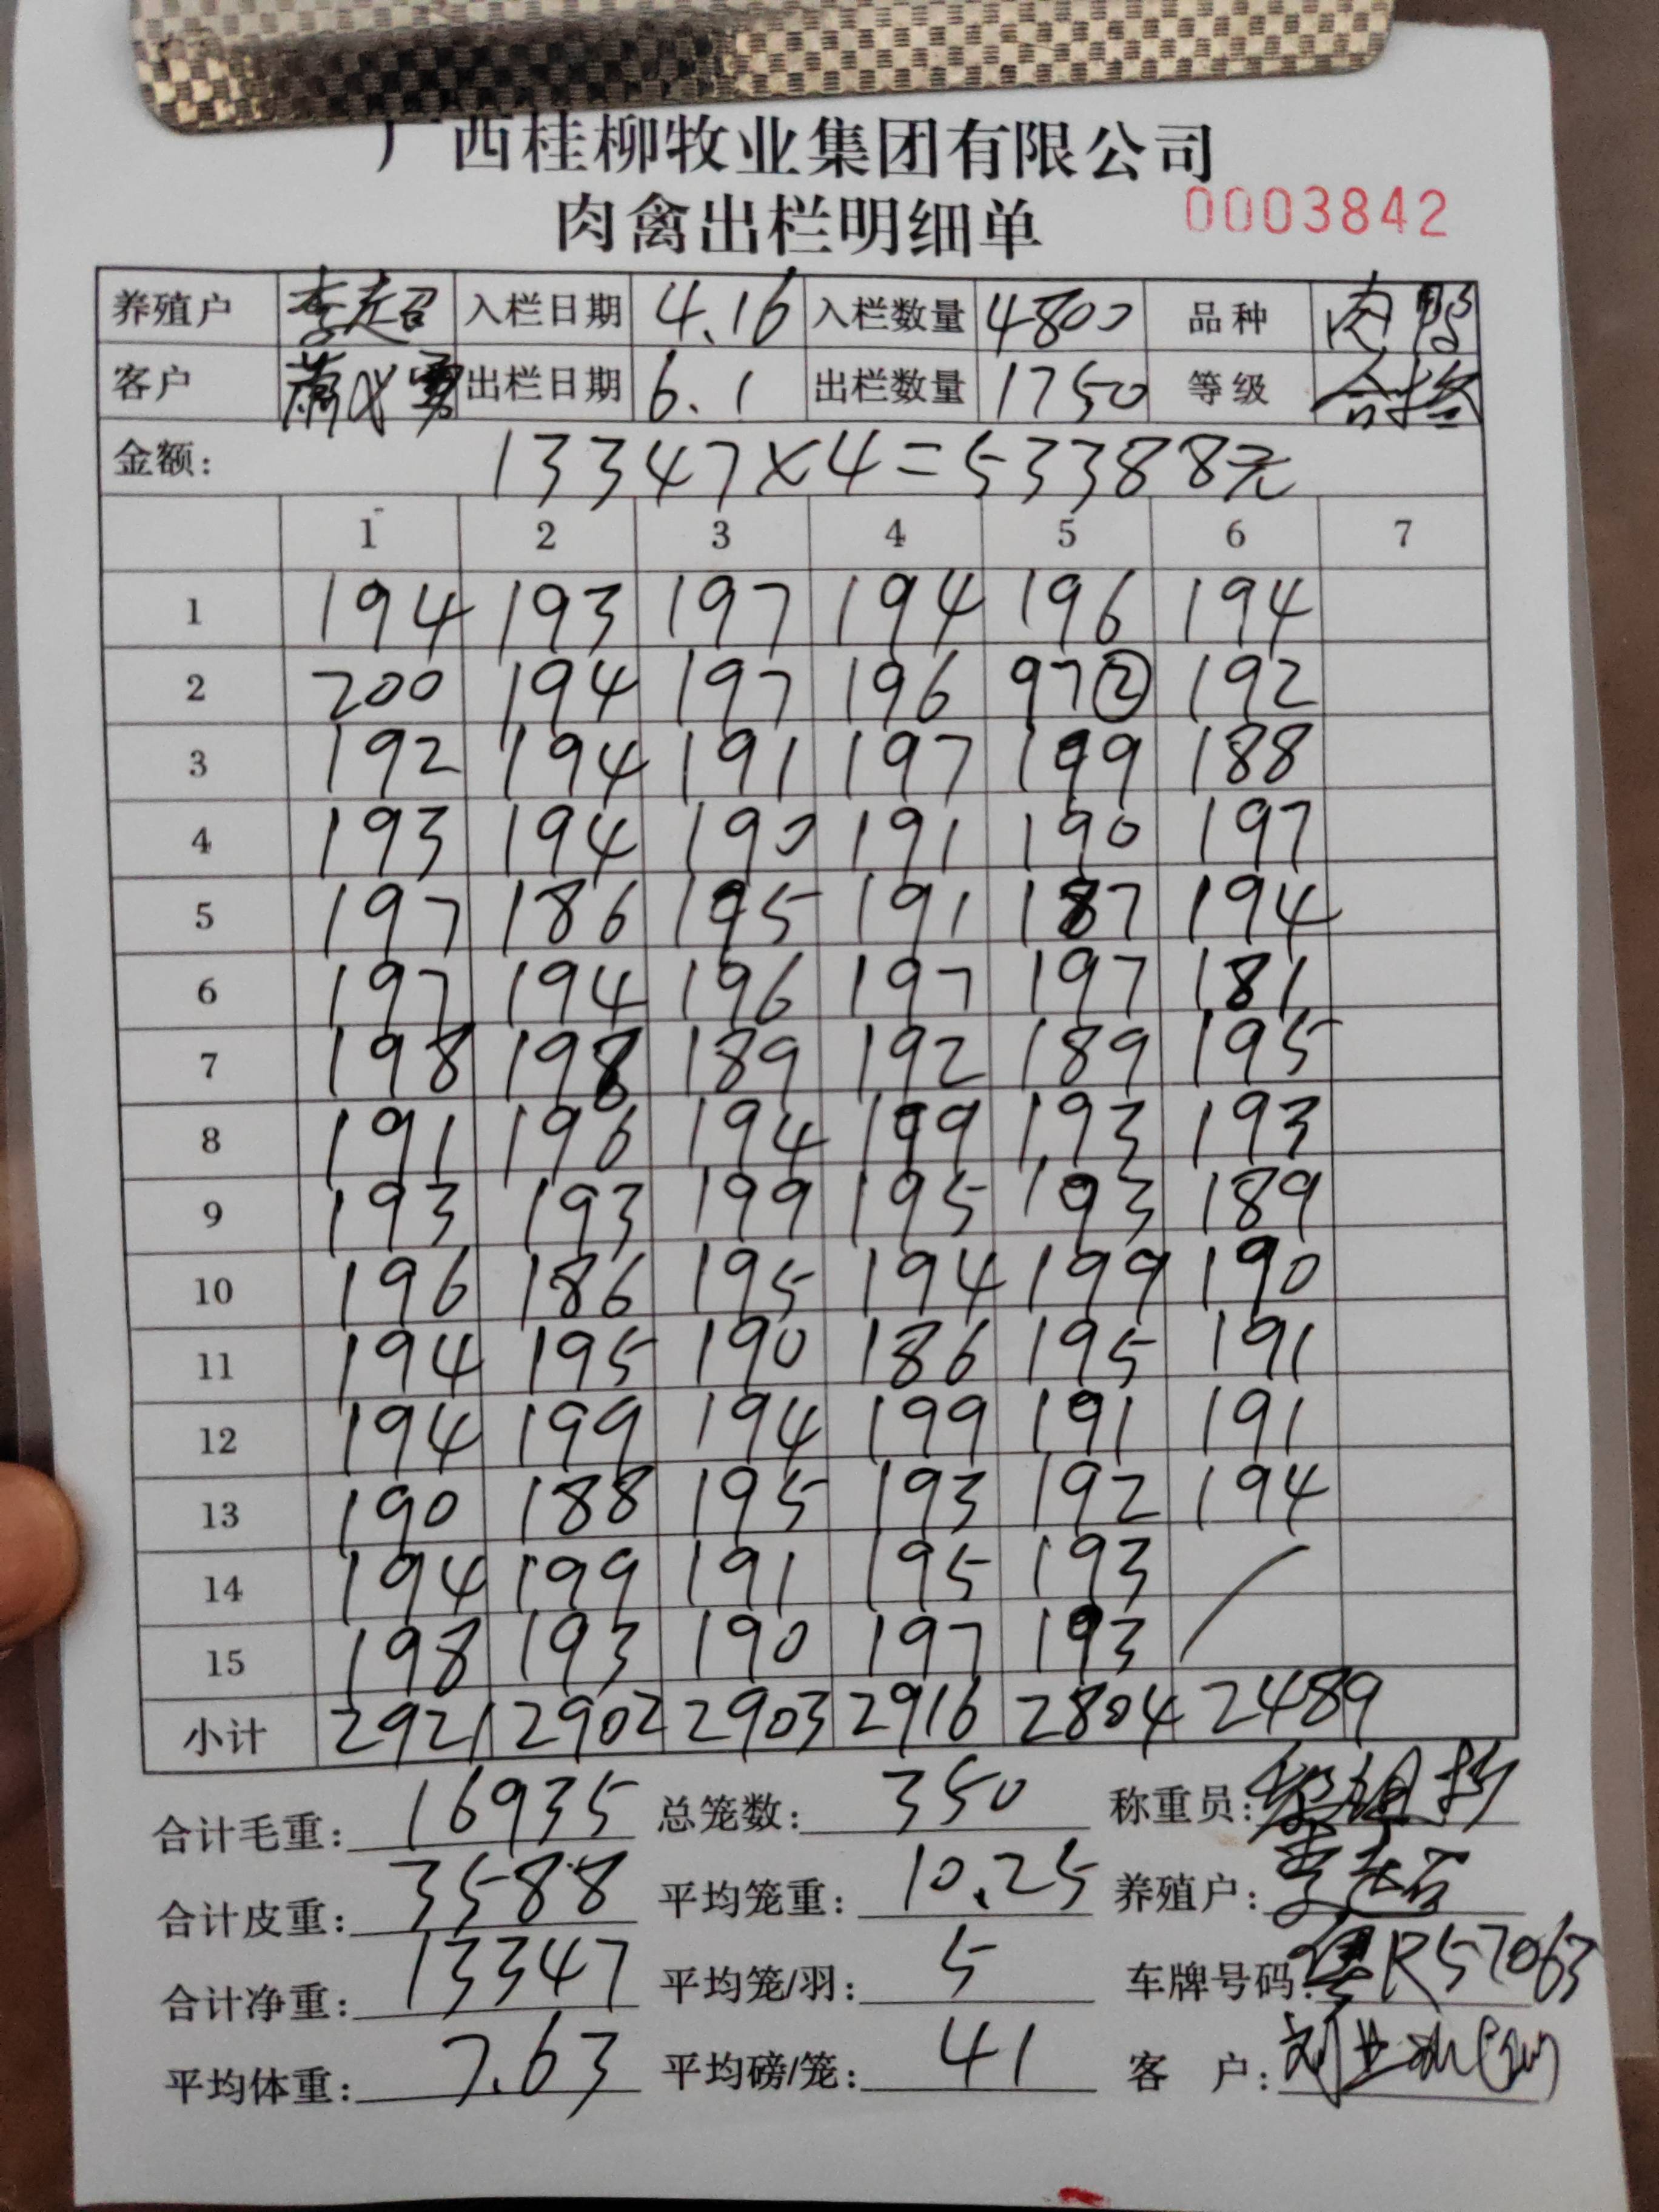 广西桂柳牧业集团有限公司
肉禽出栏明细单 0003842
养殖户 李超 入栏日期 4.16 入栏数量 4800 品种 肉鸭
客户 出栏日期 6.1 出栏数量 1750 等级 合格
金额: 13347×4=53388元
1 2 3 4 5 6 7
1 194 193 197 194 196 194
2 200 194 197 196 97② 192
3 192 194 191 197 199 188
4 193 194 190 191 190 197
5 197 186 195 191 187 194
6 197 194 196 197 197 181
7 198 198 189 192 189 195
8 191 196 194 199 193 193
9 193 193 199 195 193 189
10 196 186 195 194 199 190
11 194 195 190 186 195 191
12 194 199 194 199 191 191
13 190 188 195 193 192 194
14 194 199 191 195 193
15 198 193 190 197 193
小计 2921 2902 2903 2916 2804 2489
合计毛重: 16935 总笼数: 350 称重员:
合计皮重: 3588 平均笼重: 10.25 养殖户: 李超
合计净重: 13347 平均笼/羽: 5 车牌号码: 粤R57063
平均体重: 7.63 平均磅/笼: 41 客户: